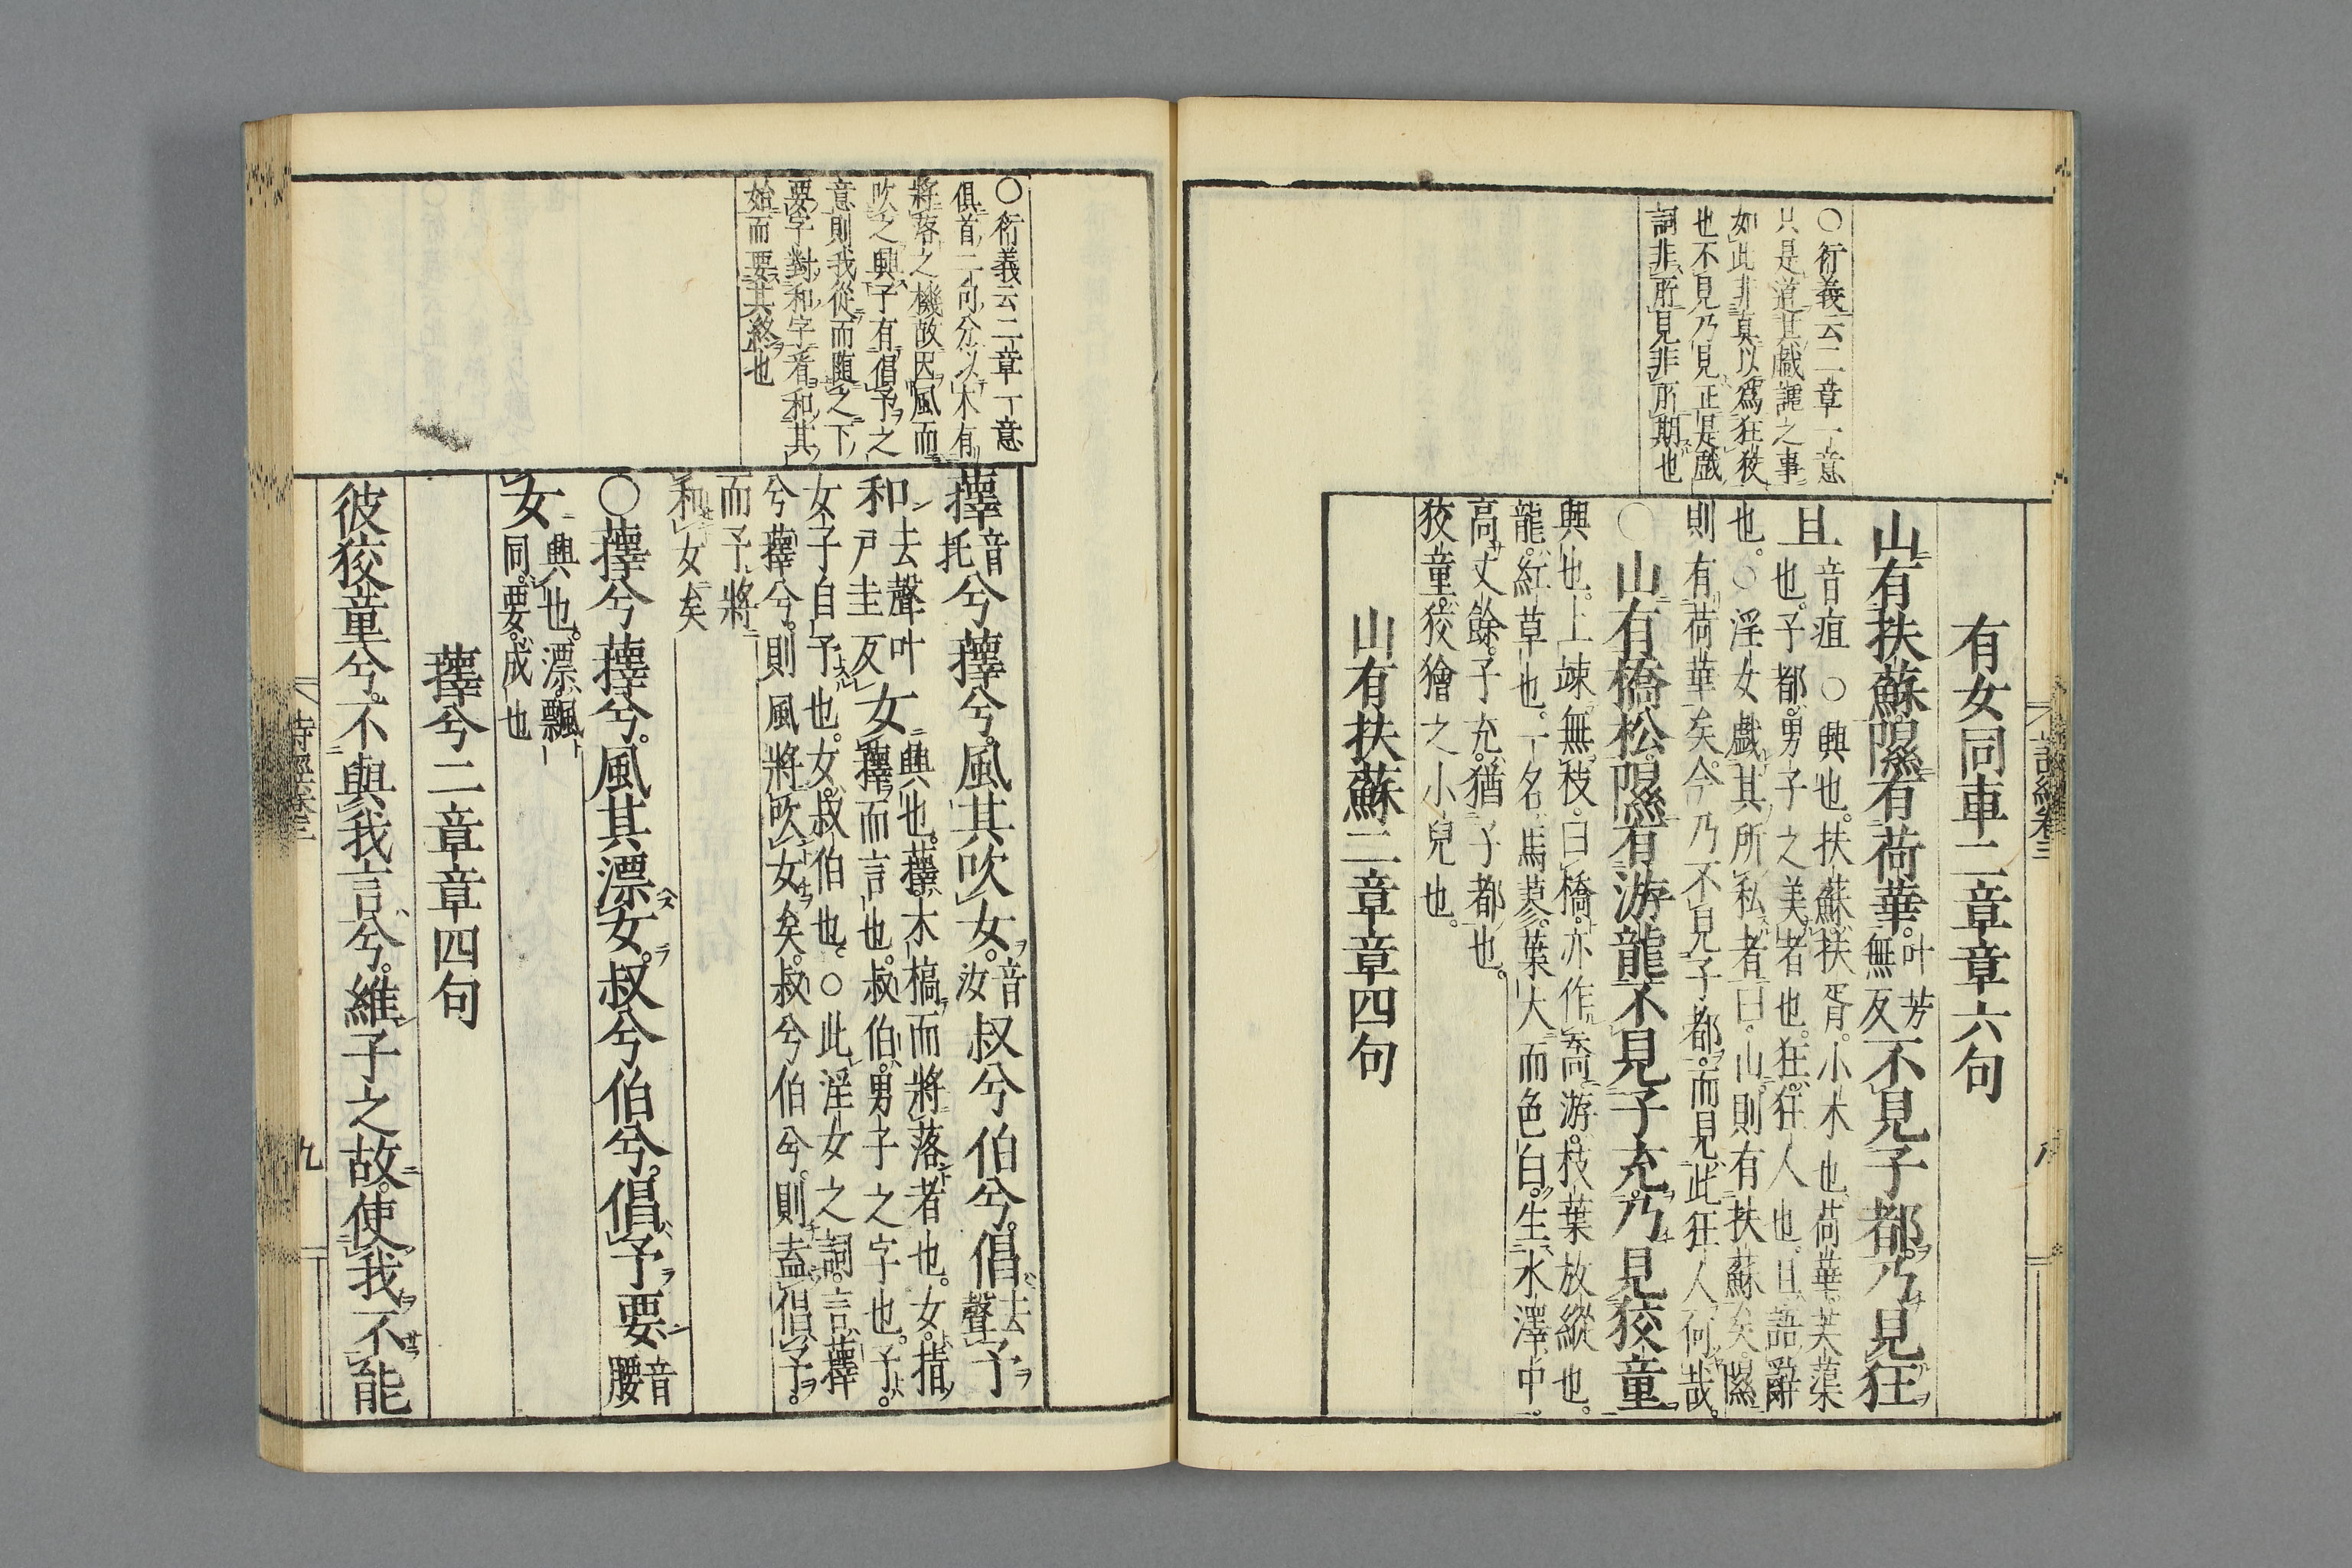 ○衍義云二章一意
只是道其戲謔之事
如此非真以爲狂狡
也不見乃見正是戲
詞非所見非所期也
有女同車二章章六句
山有扶蘇隰有荷華。叶芳無反不見子都。乃見狂
且音疽○興也。扶蘇。扶胥。小木也。荷華。芙蕖
也。子都。男子之美者也。狂。狂人也。且。語辭
也。○淫女戲其所私者曰。山。則有扶蘇矣。隰
則有荷華矣。今乃不見子都。而見此狂人何哉。
○山有橋松。隰有游龍。不見子充。乃見狡童
興也。上竦無枝。曰橋。亦作喬。游。枝葉放縱也。
龍。紅草也。一名馬蓼。葉大而色白。生水澤中。
高丈餘。子充。猶子都也。
狡童。狡獪之小兒也。
山有扶蘇二章章四句
詩經卷三
○衍義云二章一意
俱首二句分以木有
將落之機故因風而
吹之興子有倡予之
意則我從而隨之下
要字對和字看和其
始而要其終也
蘀音托兮蘀兮。風其吹女。音汝叔兮伯兮。倡去聲予
和去聲叶戸圭反女興也。蘀。木槁而將落者也。女。指
蘀而言也。叔伯。男子之字也。予。
女子自予也。女。叔伯也。○此淫女之詞。言蘀
兮蘀兮。則風將吹女矣。叔兮伯兮。則盍倡予。
而予將
和女矣
○蘀兮蘀兮。風其漂女。叔兮伯兮。倡予要音腰
女興也。漂。飄同。要。成也
蘀兮二章章四句
彼狡童兮。不與我言兮。維子之故。使我不能
詩經卷三
九